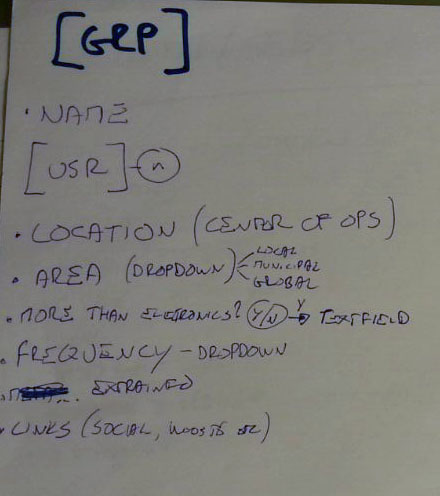 [GRP]
• NAME
[USR] - n
• LOCATION (CENTER OF OPS)
• AREA (DROPDOWN) LOCAL
MUNICIPAL
GLOBAL
• MORE THAN ELETRONICS? Y/N Y→ TEXTFIELD
• FREQUENCY - DROPDOWN
EXTRAINED
• LINKS (SOCIAL,